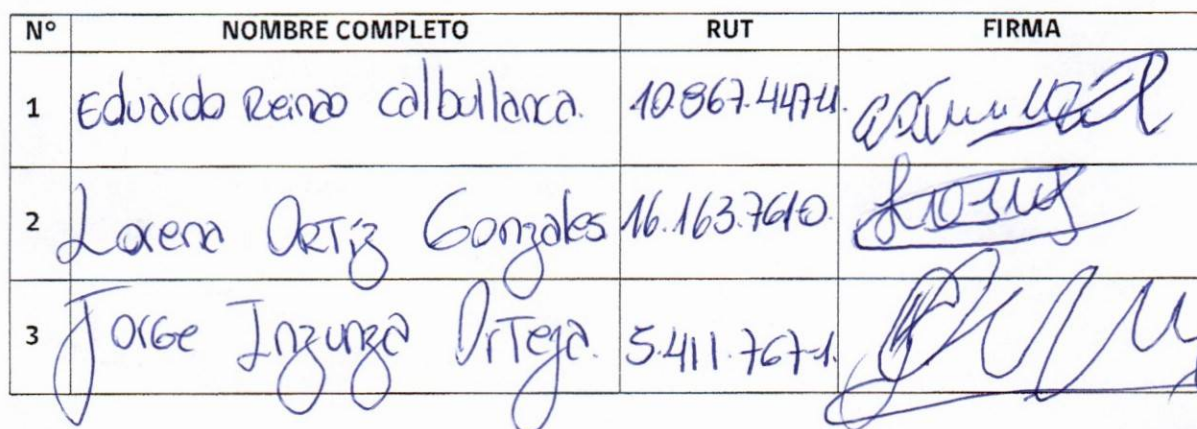 N° NOMBRE COMPLETO RUT FIRMA
1 Eduardo Reinao Calbullanca. 10.867.447-4.
2 Lorena Ortiz Gonzales 16.163.761-0.
3 Jorge Inzunza Ortega. 5.411.767-1.